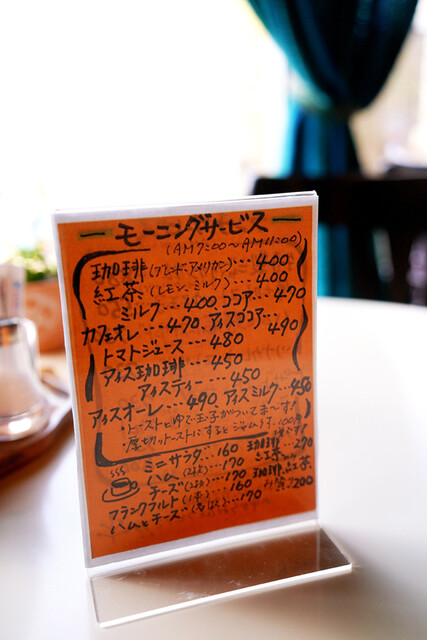 ー モーニングサービス ー
(AM7:00〜AM11:00)
珈琲(ブレンド・アメリカン)…400
紅茶(レモン、ミルク)…400
ミルク…400、ココア…470
カフェオレ…470、アイスココア…490
トマトジュース…480
アイス珈琲…450
アイスティー…450
アイスオーレ…490、アイスミルク…450
トーストとゆで玉子がついてま〜す!
厚切トーストにするとジャムつき、100円
ミニサラダ…160
ハム(2枚)…170
チーズ(2枚)…170
フランクフルト(1本)…160
ハムとチーズ…170
珈琲、
紅茶…270
珈琲、紅茶
200